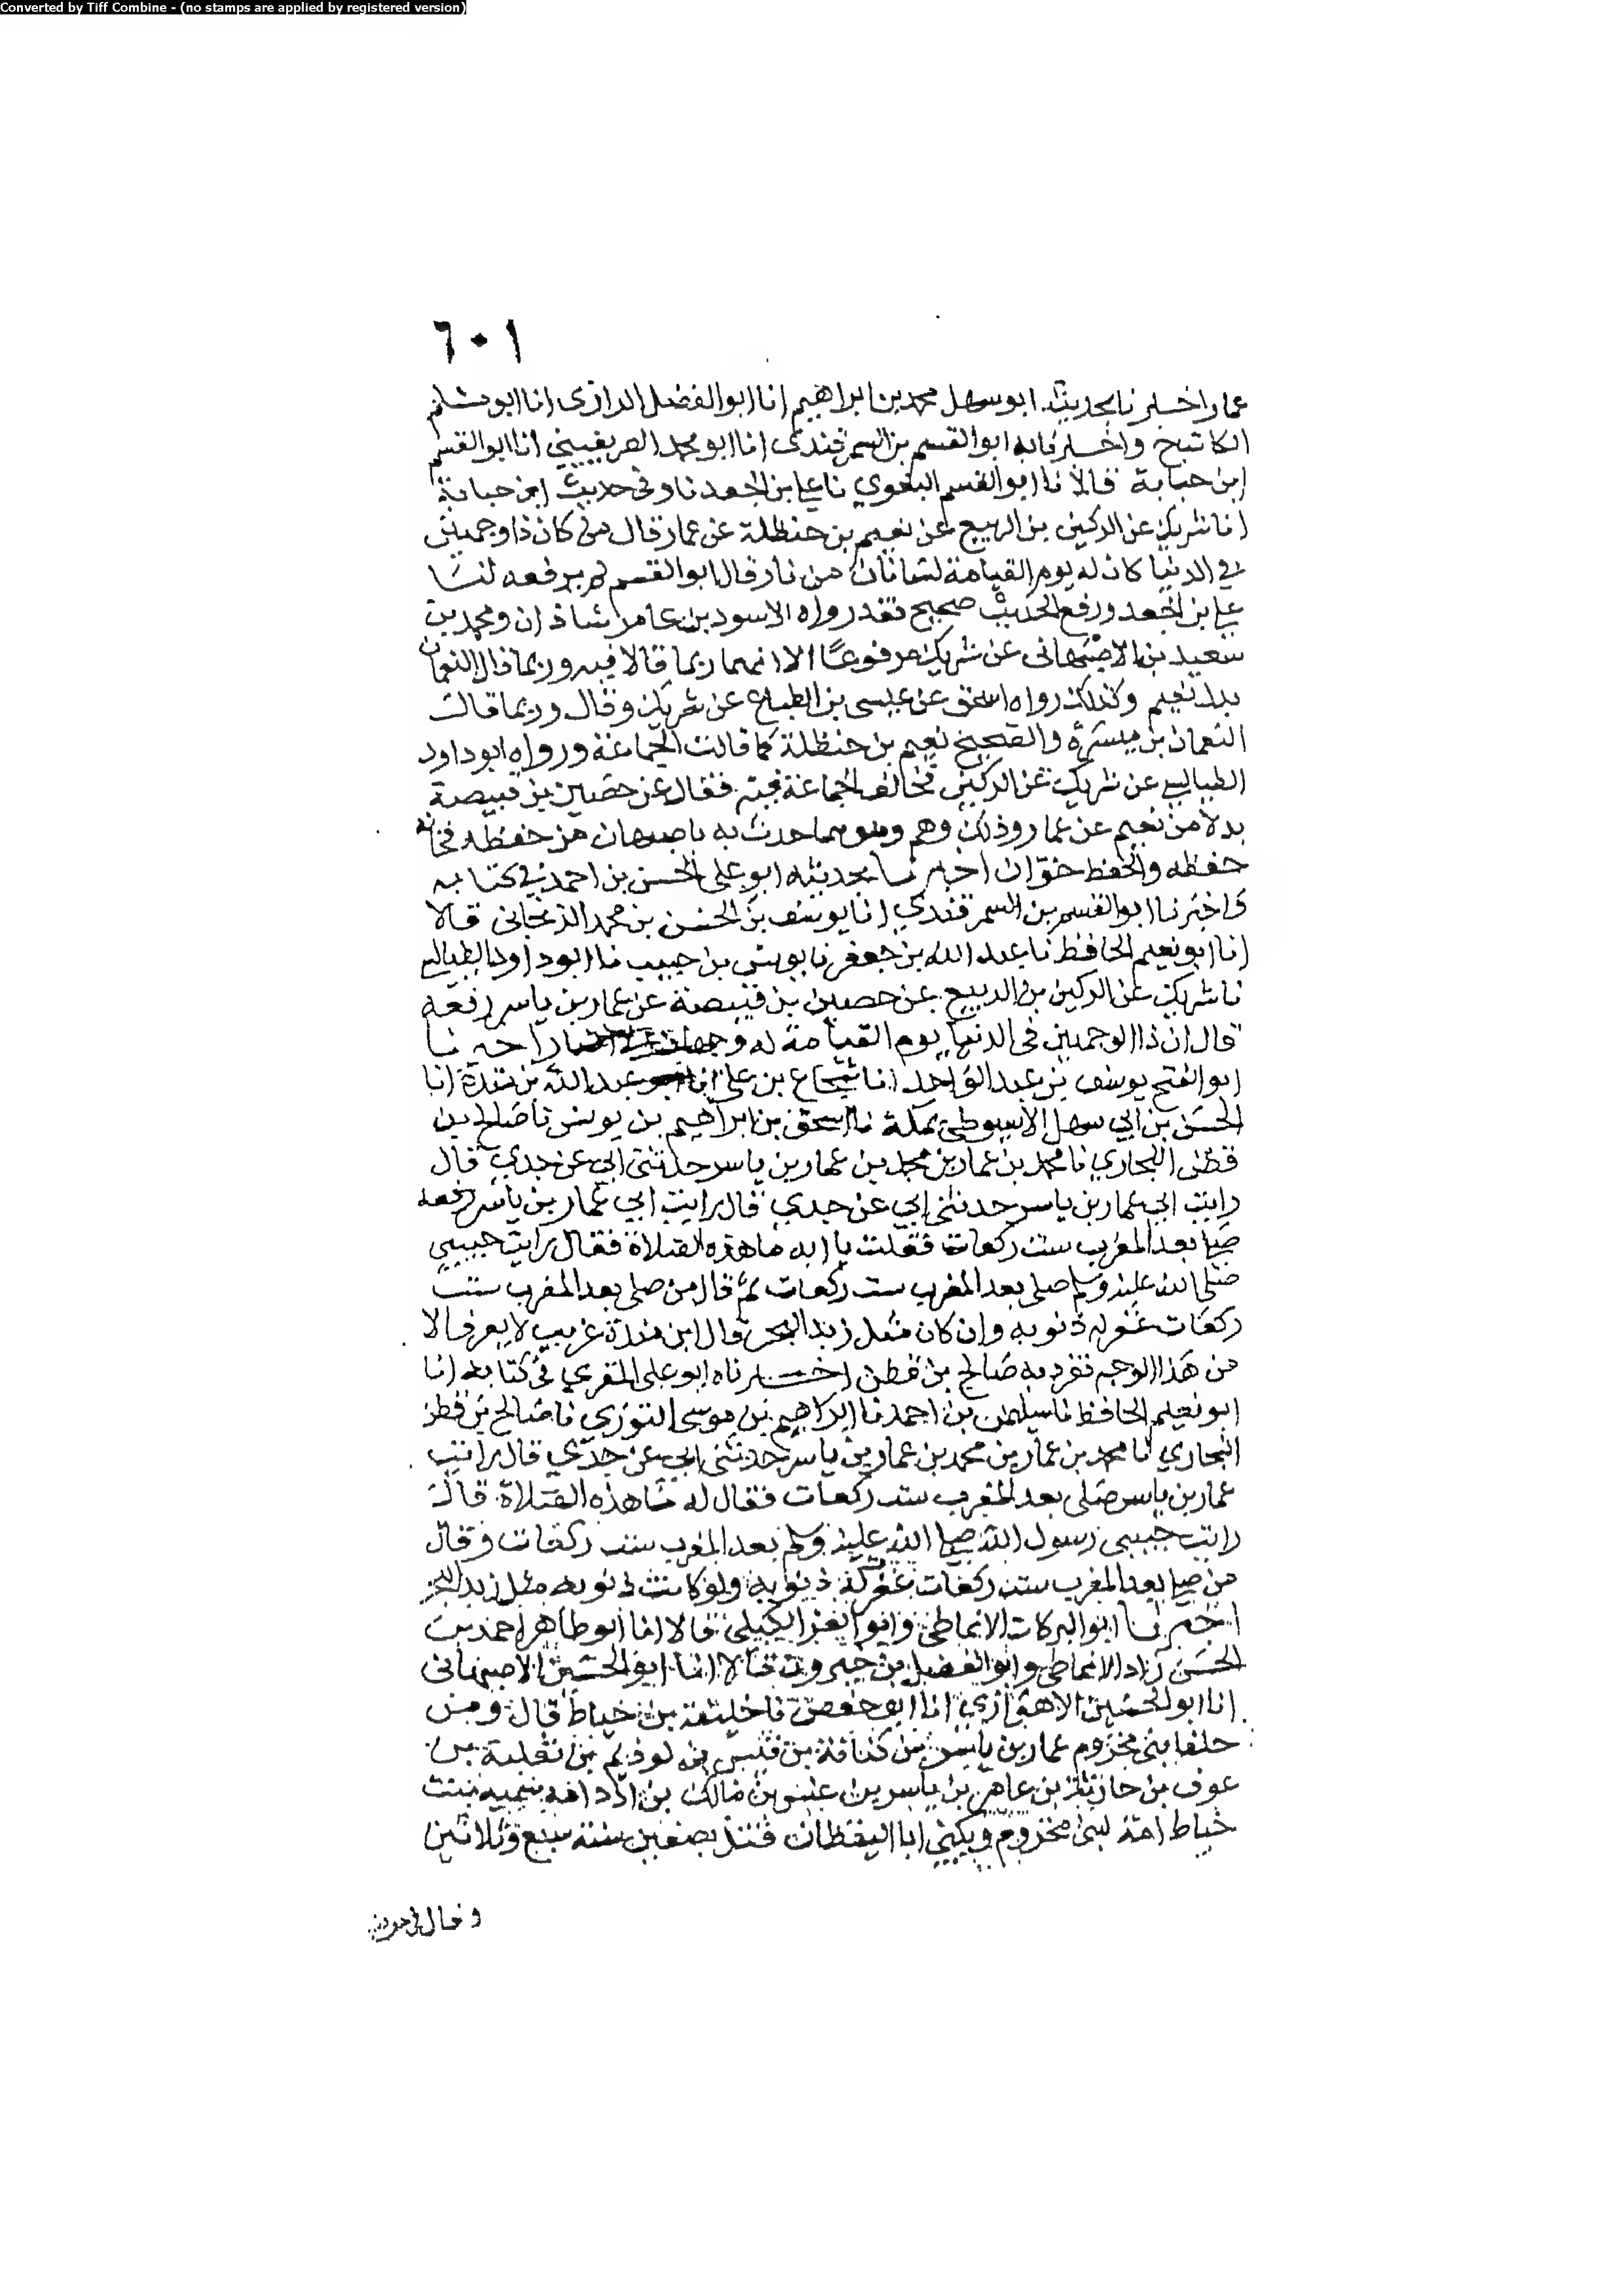 Converted by Tiff Combine - (no stamps are applied by registered version)
٦٠١
عمار اخبرنا بحديثه ابو سهل محمد بن ابراهيم انا ابو الفضل الرازى انا ابو مسلم
الكاتب ح واخبرنا به ابو القسم بن السمرقندى انا ابو محمد الصريفيني انا ابو القسم
ابن حبابة قالا نا ابو القسم البغوي نا علي ابن الجعد نا وفى حديث ابن حبابة
انا شريك عن الركين بن الربيع عن نعيم بن حنظلة عن عمار قال من كان ذا وجهين
في الدنيا كان له يوم القيامة لسانان من نار قال ابو القسم لم يرفعه لنا
علي بن الجعد ورفع الحديث صحيح فقد رواه الاسود بن عامر شاذان ومحمد بن
سعيد بن الاصبهانى عن شريك مرفوعًا الا انهما ربما قالا فيه وربما قال النعمان
بدل نعيم وكذلك رواه اسحق عن عيسى بن الطباع عن شريك وقال وربما قال
النعمان بن ميسرة والصحيح نعيم بن حنظلة كما قالت الجماعة ورواه ابو داود
الطيالسي عن شريك عن الركين فخالف الجماعة فيه فقال عن حصين بن قبيصة
بدلا من نعيم عن عمار وذلك وهم وهو مما حدث به باصبهان من حفظه فخانه
حفظه والحفظ خوّان اخبرنا بحديثه ابو على الحسن بن احمد في كتابه
واخبرنا ابو القسم بن السمرقندي انا يوسف بن الحسن بن محمد الزنجانى قالا
انا ابو نعيم الحافظ نا عبد الله بن جعفر نا يونس بن حبيب نا ابو داود الطيالسي
نا شريك عن الركين بن الربيع عن حصين بن قبيصة عن عمار بن ياسر رفعه
قال ان ذا الوجهين فى الدنيا يوم القيامة له وجهان اخبرنا
ابو الفتح يوسف بن عبد الواحد انا شجاع بن على انا عبد الله بن مندة انا
الحسن بن ابي سهل الاسيوطي بمكة نا اسحق بن ابراهيم بن يونس نا صالح بن
قطن البخاري نا محمد بن عمار بن محمد بن عمار بن ياسر حدثنى ابي عن جدي قال
رايت ابي عمار بن ياسر حدثنى ابي عن جدي قال رايت ابي عمار بن ياسر رفعه
صلى بعد المغرب ست ركعات فقلت يا ابه ما هذه الصلاة فقال رايت حبيبي
صلى الله عليه وسلم صلى بعد المغرب ست ركعات ثم قال من صلى بعد المغرب ست
ركعات غفر له ذنوبه وان كان مثل زبد البحر قال ابن مندة غريب لا يعرف الا
من هذا الوجه تفرد به صالح بن قطن اخبرناه ابو على المقري فى كتابه انا
ابو نعيم الحافظ نا سليمن بن احمد نا ابراهيم بن موسى التوزي نا صالح بن قطن
البخاري نا محمد بن عمار بن محمد بن عمار بن ياسر حدثنى ابي عن جدّي قال رايت
عمار بن ياسر صلى بعد المغرب ست ركعات فقال له ما هذه الصلاة قال
رايت حبيبي رسول الله صلى الله عليه وسلم بعد المغرب ست ركعات وقال
من صلى بعد المغرب ست ركعات غفرت له ذنوبه ولو كانت ذنوبه مثل زبد البحر
اخبرنا ابو البركات الانماطي وابو العز الكيلي قالا انا ابو طاهر احمد بن
الحسن زاد الانماطى وابو الفضل بن خيرون قالا انا ابو الحسين الاصبهانى
انا ابو الحسين الاهوازي انا ابو حفص نا خليفة بن خياط قال ومن
حلفا بنى مخزوم عمار بن ياسر بن كنانة بن قيس بن لوذيم بن ثعلبة بن
عوف بن حارثة بن عامر بن ياسر بن عنس بن مالك بن ادد امه سمية بنت
خياط امة لبنى مخزوم ويكنى ابا اليقظان قتل بصفين سنة سبع وثلاثين
وقال فى